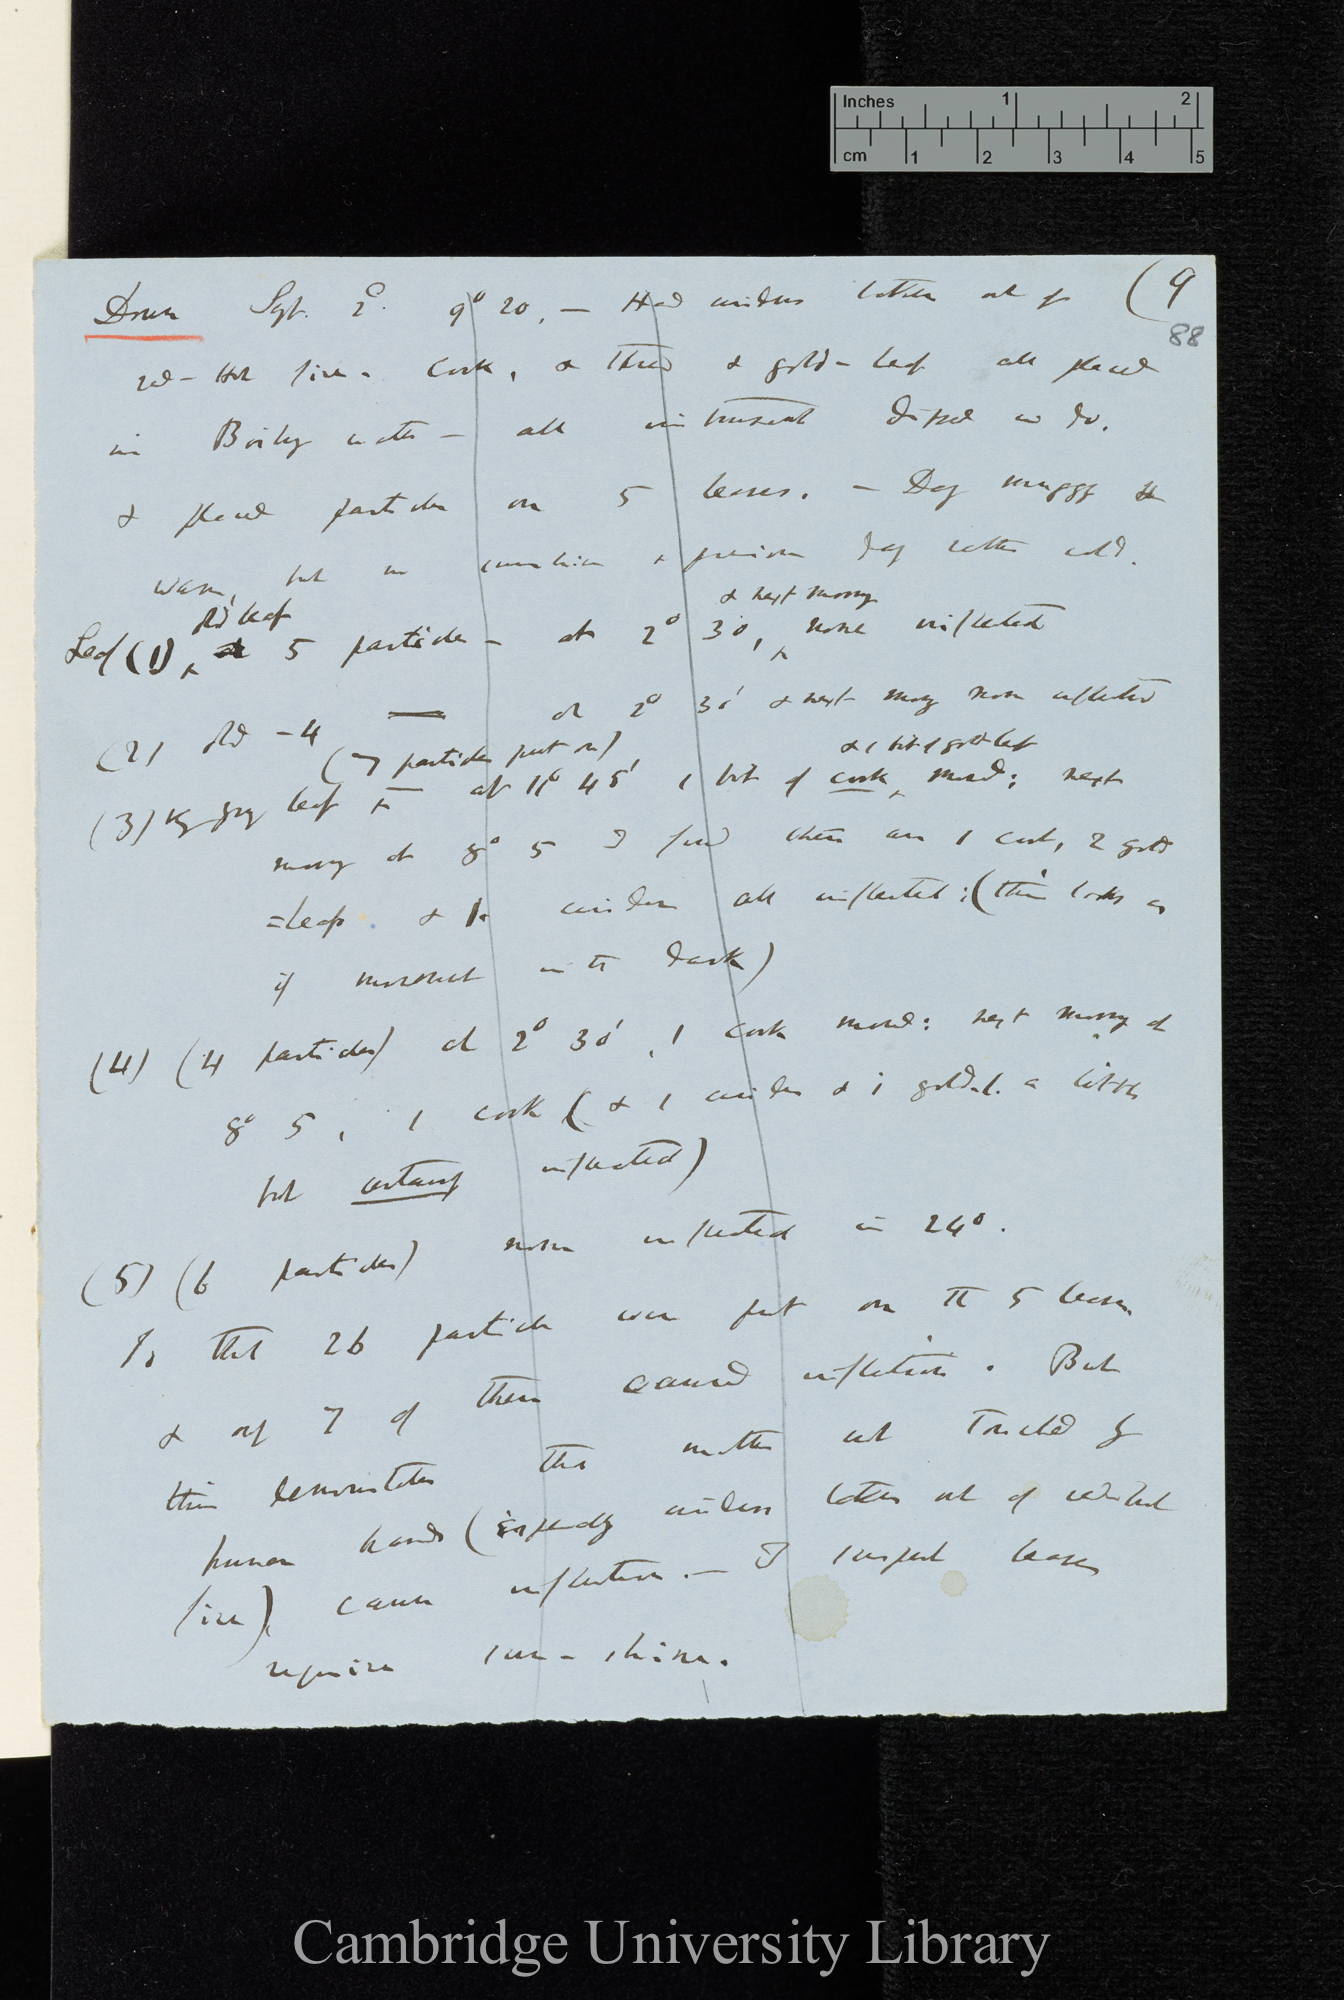 Inches 1 2
cm 1 2 3 4 5
(9
88
Down Sept. 2º. 9º 20, — Had cinders taken out of
red-hot fire. Cork, & thread & gold-leaf all placed
in Boiling water — all instruments dipped in do.
& placed particles on 5 leaves. — Day muggy &
warm, but no sunshine & previous day rather cold.
old leaf & next morng
Leaf (1), 5 particles — at 2º 30, none inflected
(2) old — 4 — at 2º 30' & next morng none inflected
(7 particles put on) & 1 bit of gold leaf
(3) leaf at 11º 45' 1 bit of cork moved; next
morng at 8º 5 I find there are 1 cork, 2 gold
=leaf & 1 cinder all inflected; (this looks as
if movement in the dark)
(4) (4 particles) at 2º 30', 1 cork moved: next morng at
8º 5, 1 cork (& 1 cinder & 1 gold-l. a little
but certainly inflected)
(5) (6 particles) none inflected in 24º.
So that 26 particles were put on the 5 leaves
& only 7 of them caused inflection. But
this demonstrates that matter not touched by
human hands (especially cinders taken out of red-hot
fire) cause inflection. — I suspect leaves
require sun-shine.
Cambridge University Library